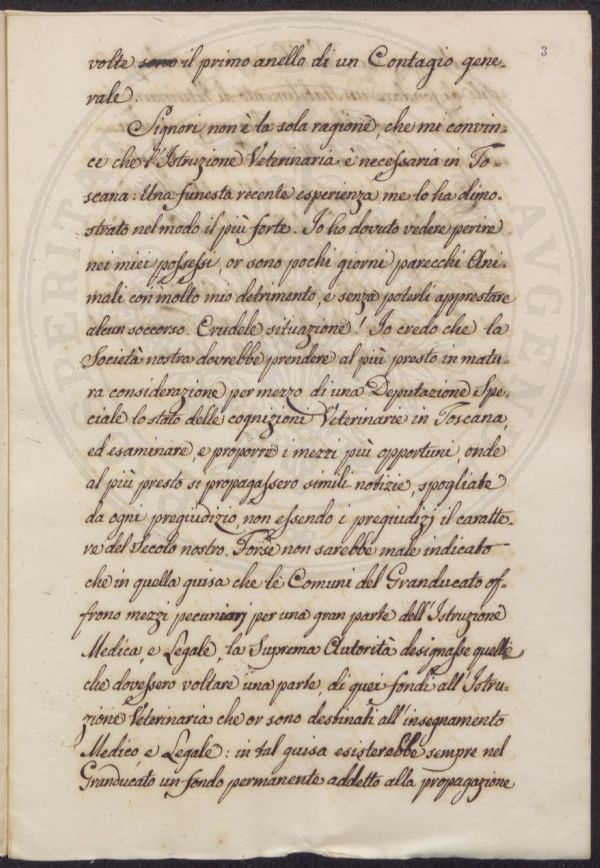 3
volte sono il primo anello di un Contagio gene-
rale.
Signori non è la sola ragione, che mi convin-
ce che l'Istruzione Veterinaria è necessaria in To-
scana: Una funesta recente esperienza me lo ha dimo-
strato nel modo il più forte. Io ho dovuto vedere perire
nei miei possessi, or sono pochi giorni parecchi Ani-
mali con molto mio detrimento, e senza poterli apprestare
alcun soccorso. Crudele situazione! Io credo che la
Società nostra dovrebbe prendere al più presto in matu-
ra considerazione per mezzo di una Deputazione Spe-
ciale lo stato delle cognizioni Veterinarie in Toscana,
ed esaminare, e proporre i mezzi più opportuni, onde
al più presto si propagassero simili notizie, spogliate
da ogni pregiudizio, non essendo i pregiudizj il caratte-
re del secolo nostro. Forse non sarebbe male indicato
che in quella guisa che le Comuni del Granducato of-
frono mezzi pecuniarj per una gran parte dell'Istruzione
Medica, e Legale, la Suprema Autorità designasse quelle
che dovessero voltare una parte di quei fondi all'Istru-
zione Veterinaria che or sono destinati all'insegnamento
Medico e Legale: in tal guisa esisterebbe sempre nel
Granducato un fondo permanente addetto alla propagazione